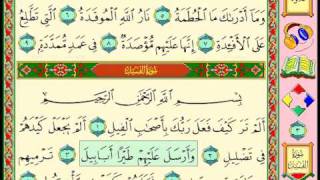 وَمَآ أَدْرَىٰكَ مَا ٱلْحُطَمَةُ ٥ نَارُ ٱللَّهِ ٱلْمُوقَدَةُ ٦ ٱلَّتِى تَطَّلِعُ
عَلَى ٱلْأَفْـِٔدَةِ ٧ إِنَّهَا عَلَيْهِم مُّؤْصَدَةٌ ٨ فِى عَمَدٍ مُّمَدَّدَةٍۭ ٩
سُورَةُ الفِيلِ
بِسْمِ ٱللَّهِ ٱلرَّحْمَٰنِ ٱلرَّحِيمِ
أَلَمْ تَرَ كَيْفَ فَعَلَ رَبُّكَ بِأَصْحَٰبِ ٱلْفِيلِ ١ أَلَمْ يَجْعَلْ كَيْدَهُمْ
فِى تَضْلِيلٍ ٢ وَأَرْسَلَ عَلَيْهِمْ طَيْرًا أَبَابِيلَ ٣ تَرْمِيهِم